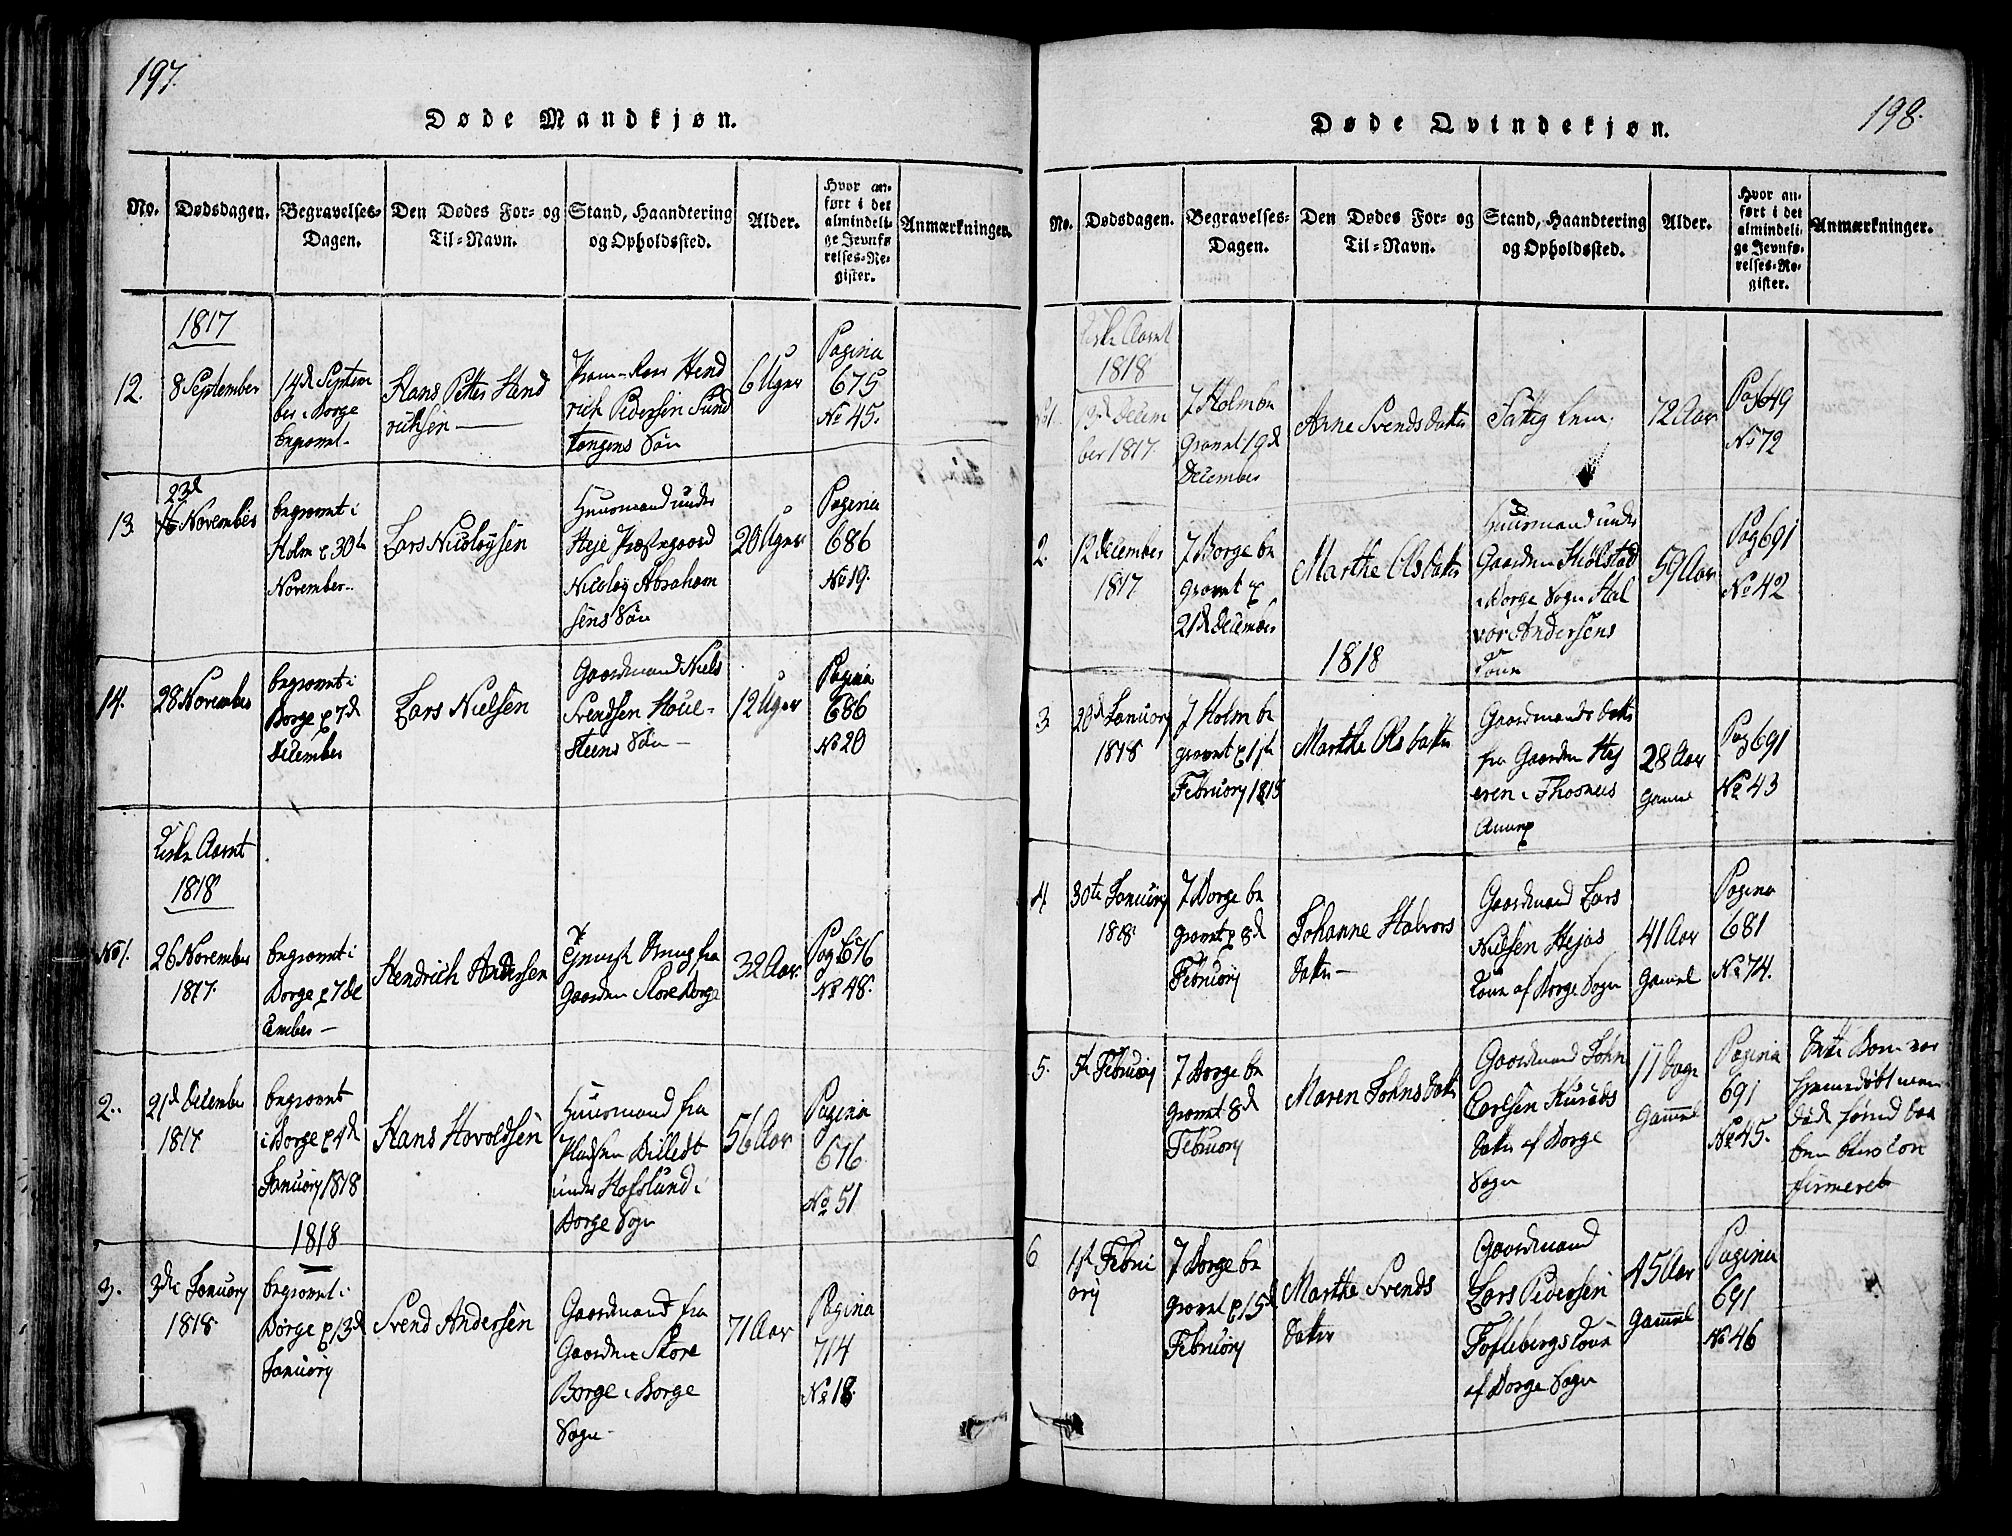 197.
Døde Mandkjøn.
No.
Dødsdagen.
Begravelses-
Dagen.
Den Dødes For- og
Til-Navn.
Stand, Haandtering
og Opholdssted.
Alder.
Hvor an-
ført i det
almindeli-
ge Jevnfø-
relses-Re-
gister.
Anmærkninger.
1817
12.
8 September
14d Septem
ber i Borge
begravet
Hans Petter Hend
richsen
Hend
rich Pedersen Sund
tangens Søn
6 Uger
Pagina
675
No 45.
13
23d
November
begravet i
Holm d 30te
November
Lars Nicolaysen
Huusmand under
Heje Præstegaard
Nicolay Abraham
sens Søn
20 Uger
Pagina
686
No 19.
14.
28 November
begravet i
Borge d 7d
December
Lars Nielsen
Gaardmand Niels
Svendsen Houe-
steens Søn
12 Uger
Pagina
686
No 20
Kirke Aaret
1818
No 1.
26 November
1817.
begravet i
Borge d 7 de
cember
Hendrich Andersen
fra
Gaarden Store Borge
32 Aar
Pag 676
No 48.
2.
21d December
1817
begravet
i Borge d 4d
Januarij 1818
Hans Hovoldsen
Huusmand fra
Pladsen Billedt
under Hafslund i
Borge Sogn
56 Aar
Pagina
676
No 51
1818
3.
3die Januarij
1818
begravet i
Borge d 13d
Januarij
Svend Andersen
Gaardmand fra
Gaarden Store
Borge i Borge
Sogn
71 Aar
Pagina
714
No 18
198.
Døde Qvindekjøn.
No.
Dødsdagen.
Begravelses-
Dagen.
Den Dødes For- og
Til-Navn.
Stand, Haandtering
og Opholdssted.
Alder.
Hvor an-
ført i det
almindeli-
ge Jevnfø-
relses-Re-
gister.
Anmærkninger.
Kirke Aaret
1818
1.
13d Decem
ber 1817.
I Holm be
gravet 19d
December
Arne Svends Datter
Fattig Lem.
72 Aar
Pag 649
No 72
2.
12 December
1817
I Borge be
gravet d
21d December
Marthe Ols Datter
Huusmand under
Gaarden Skiølstad
i Borge Sogn Hal
vor Andersens
Kone
59 Aar
Pag 691
No 42
1818
3
20d Januarj
1818
I Holm be
gravet d 1ste
Februarj 1818
Marthe Ols Datter
Gaardmands Datter
fra Gaarden Hej
eren i Thosnæs
Annex
28 Aar
Gamel
Pag 691
No 43
4
30te Januarij
1818
I Borge be
gravet d 8d
Februarij
Johanne Halvors
Datter
Gaardmand Lars
Nielsen Hejas
Kone af Borge Sogn
41 Aar
Gamel
Pagina
681
No 74.
5.
5te Februarij
I Borge be
gravet 8d
Februarij
Maren Johns Datter
Gaardmand John
Carlsen Kuraas
Datter af Borge
Sogn
11 Dage
Gammel
Pagina
691
No 45.
Dette Barn var
hjemmedøbt men
døde førend Daa
ben blev con
firmeret
6
1ste Febru
arij
I Borge be
gravet d 15d
Februarij
Marthe Svends
Datter
Gaardmand
Lars Pedersen
Tofteberg Kone
af Borge Sogn
45 Aar
Gammel
Pagina
691
No 46